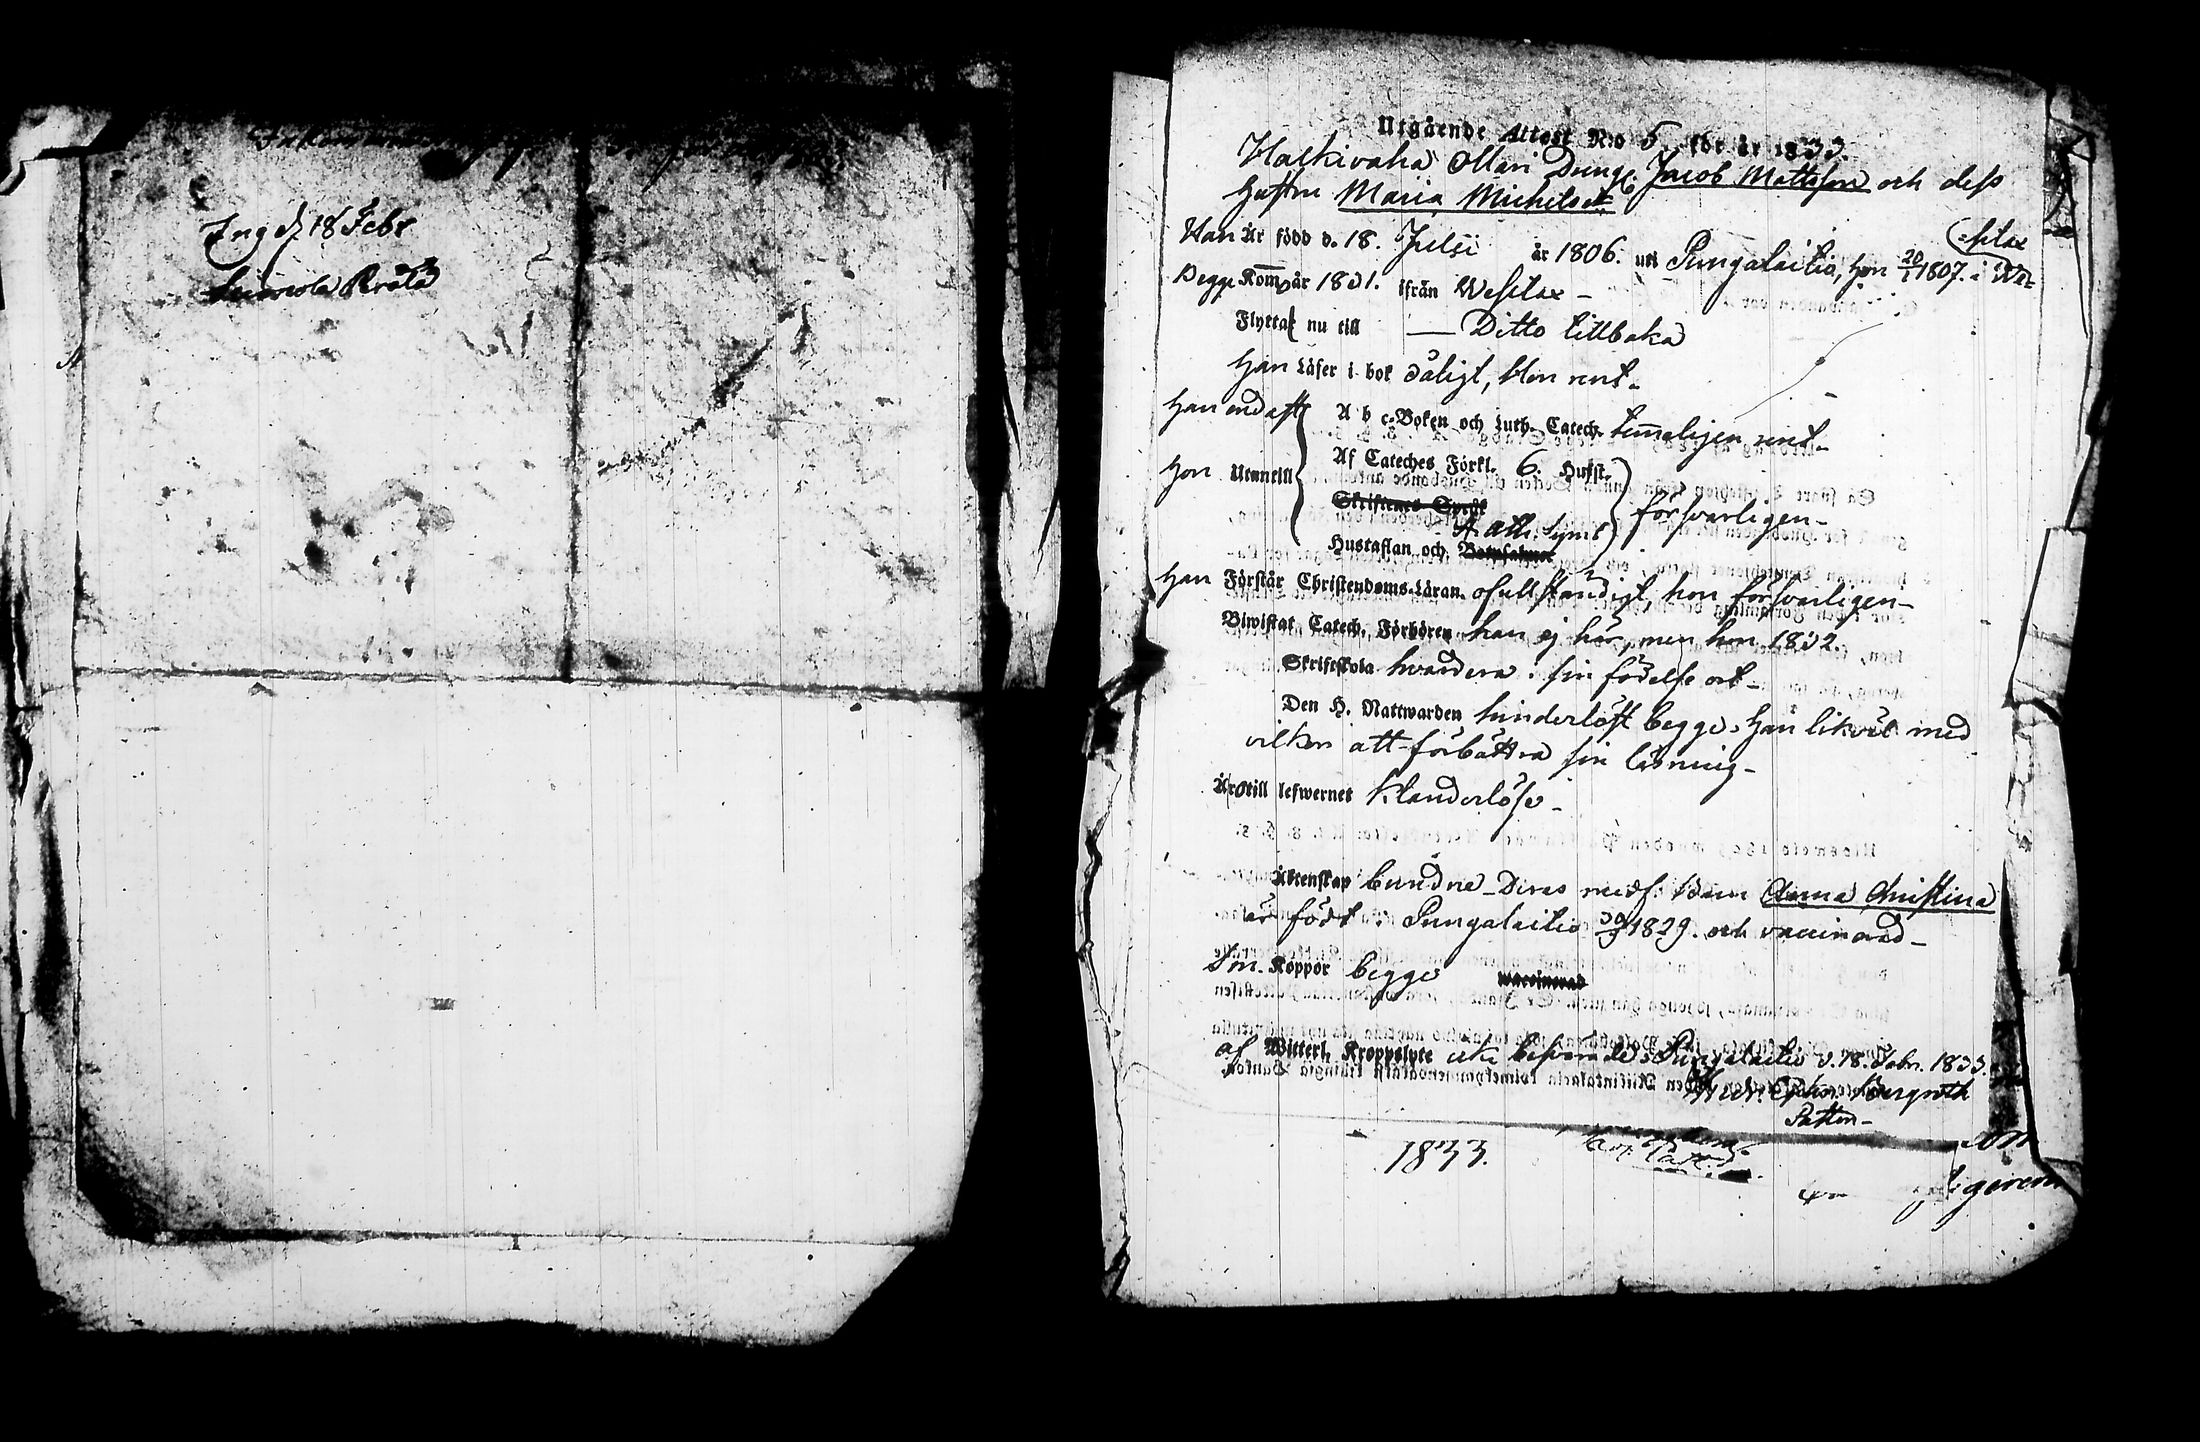 Ing d. 18 Febr
Perälä
Utgående Attest N:o 5 för år 1833.
Halkivaha Ollari Dreng Jacob Mattsson och dess
hustru Maria Michelsdr
Han Är född d. 18. Julii år 1806. uti Pungalaitio, hon 20/1 1807. i We-
sitax
Begge Kommo år 1831. ifrån Wesilax –
Flyttat nu till — Ditto tillbaka
Han Läser i bok dåligt, Hon rent –
Han endast A b c-Boken och Luth. Catech. temmeligen rent –
Hon Utantill Af Cateches Förkl. 6. Hufst.
Skriftenes Språk försvarligen –
A. Ath. Symb
Hustaflan och Botpsalmer
Han Förstår Christendoms-Läran ofullständigt, hon försvarligen –
Biwistat Catech. Förhören han ej här, men hon 1832.
Skriftskola hvardera i sin födelse ort –
Den H. Nattwarden hinderlöst begge, Han likväl med
vilkor att förbättra sin läsning –
Äro till lefwernet klanderlöse –
Äktenskap bundne – Deras medf. Barn Anna Christina
är född i Pungalaitio 30/9 1829. och vaccinerad –
Koppor begge waccinerad
af Witterl. Kroppslyte icke besvärade. Pungalaitio d. 18. Febr. 1833.
1833.